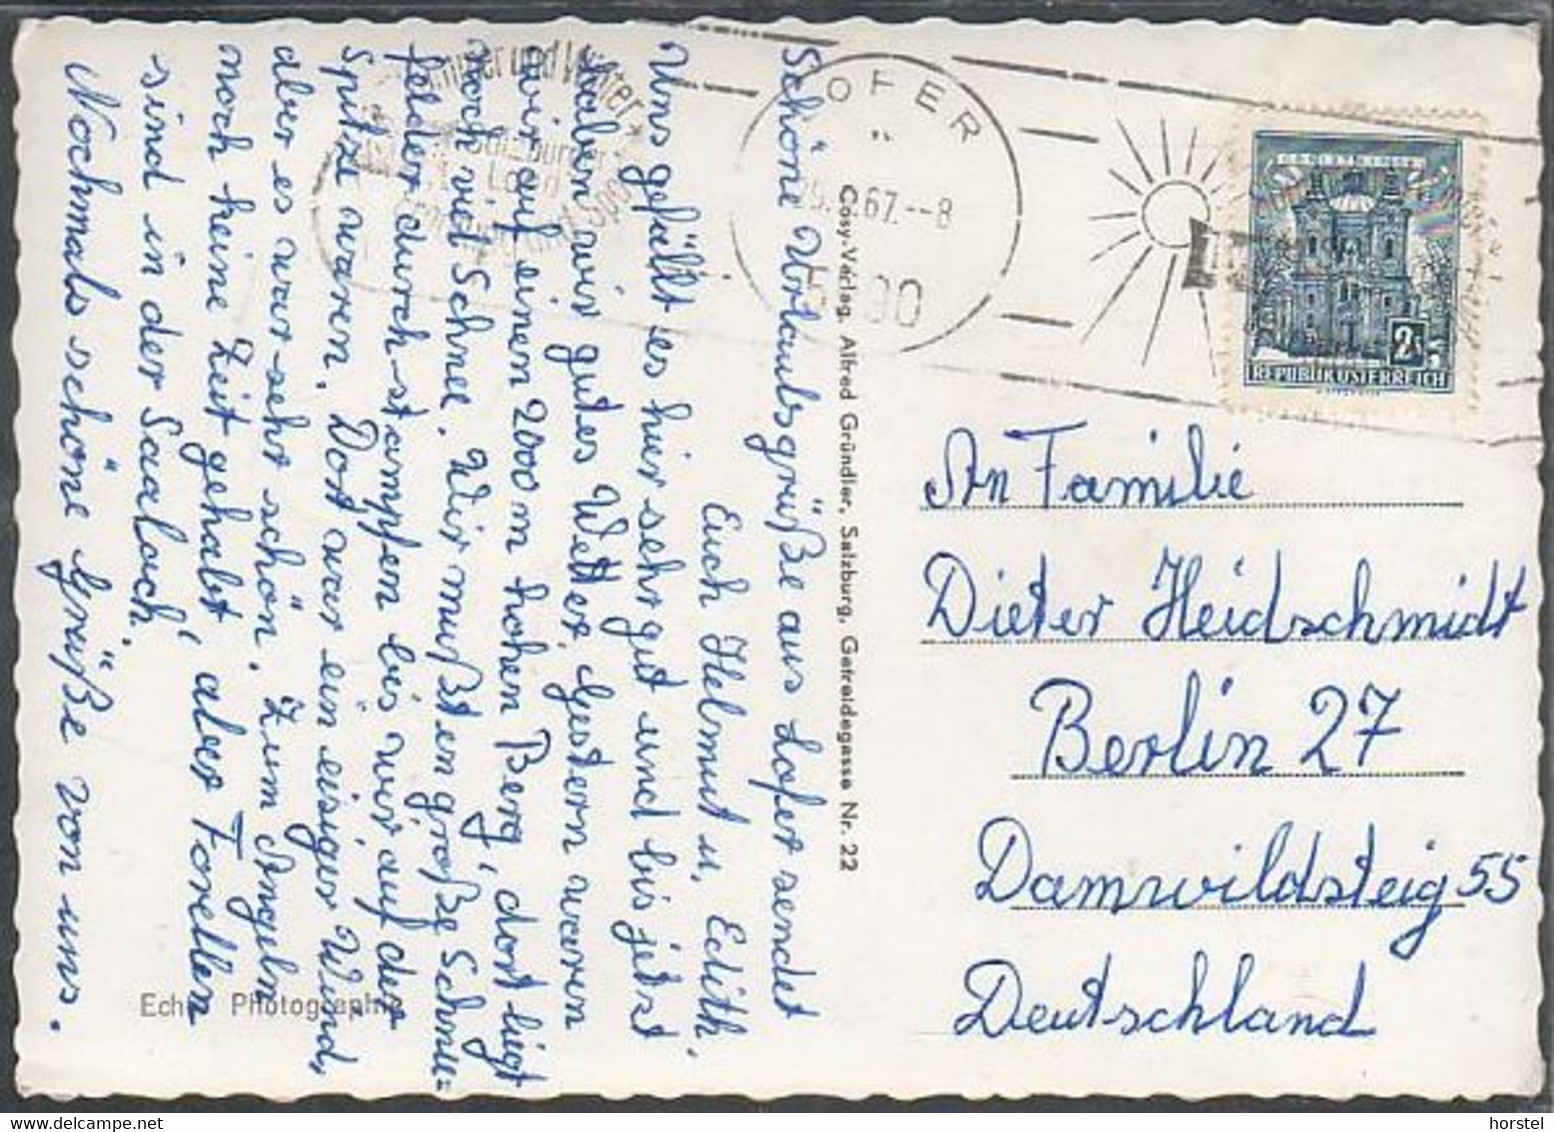 Schöne Urlaubsgrüße aus Lofer sendet
Euch Helmut u. Edith.
Uns gefällt es hier sehr gut und bis jetzt
haben wir gutes Wetter. Gestern waren
wir auf einen 2000 m hohen Berg, dort liegt
noch viel Schnee. Wir mußten große Schnee=
felder durchstampfen bis wir auf der
Spitze waren. Dort war ein eisiger Wind,
aber es war sehr schön. Zum Angeln
noch keine Zeit gehabt, aber Forellen
sind in der Saalach.
Nochmals schöne Grüße von uns.
Echte Photographie
Cosy-Verlag, Alfred Gründler, Salzburg, Getreidegasse Nr. 22
OFER
67.--8
90
2S
REPUBLIK ÖSTERREICH
An Familie
Dieter Heidschmidt
Berlin 27
Damwildsteig 55
Deutschland